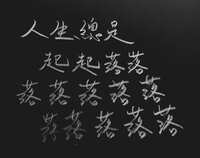 人生總是
起起落落
落落落落落
落落落落落